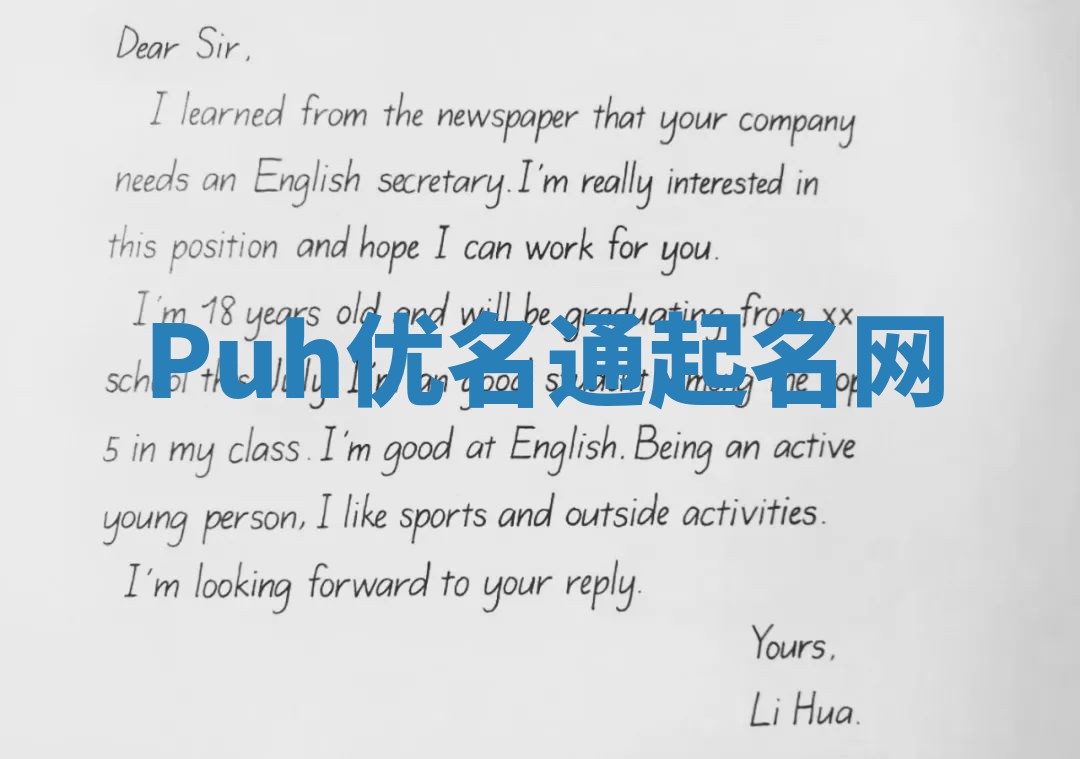 Dear Sir,
I learned from the newspaper that your company
needs an English secretary. I'm really interested in
this position and hope I can work for you.
I'm 18 years old and will be graduating from xx
Puh优名通起名网
school this July. I'm an good student among the top
5 in my class. I'm good at English. Being an active
young person, I like sports and outside activities.
I'm looking forward to your reply.
Yours,
Li Hua.